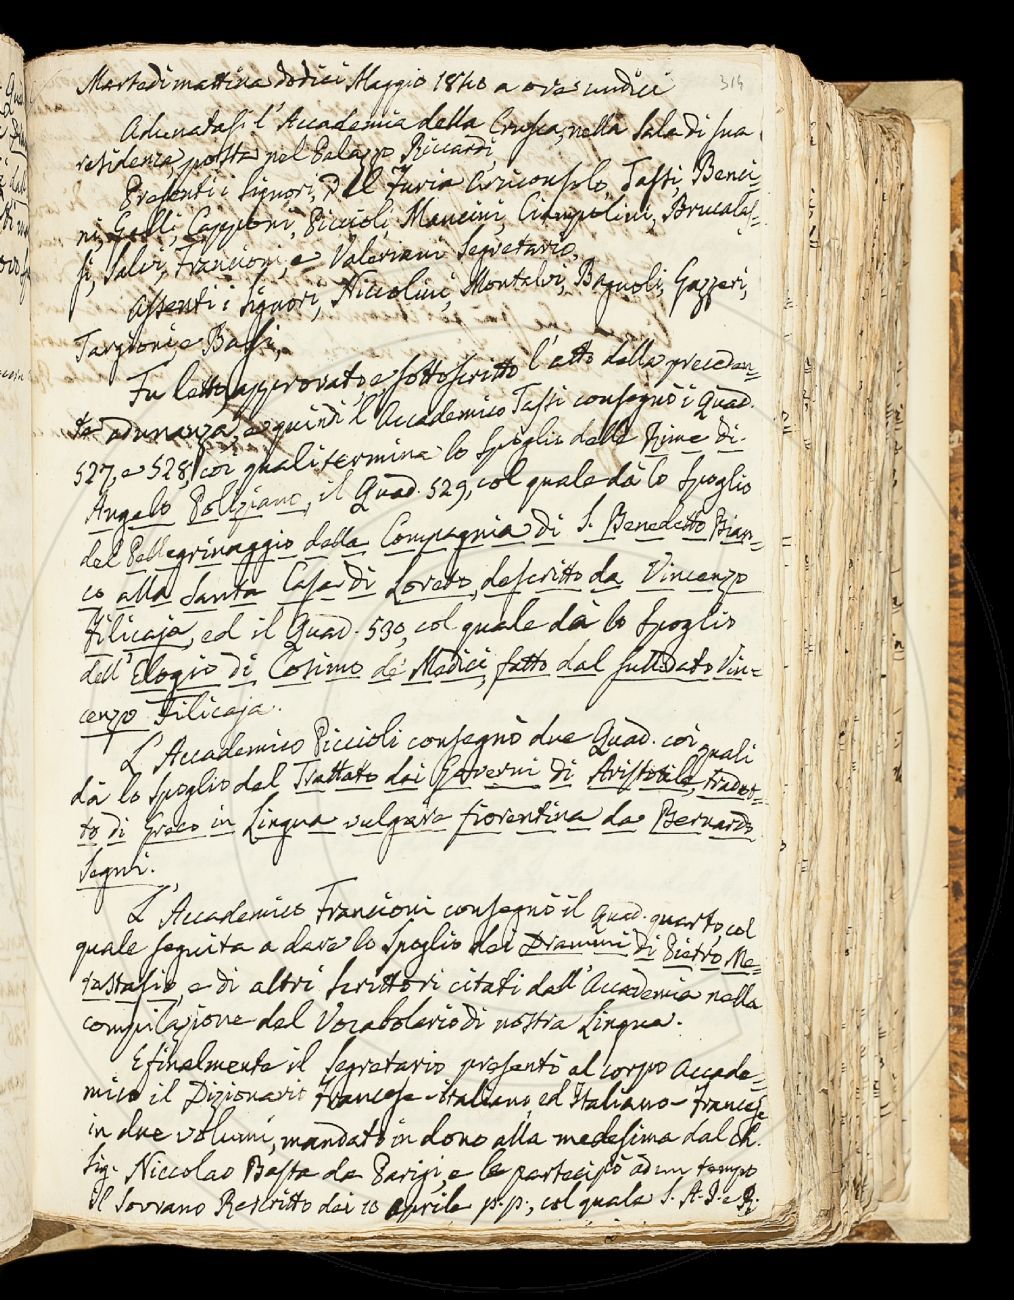 314
Martedì mattina dodici Maggio 1840 a ore undici
Adunatasi l'Accademia della Crusca, nella Sala di sua
residenza, posta nel Palazzo Riccardi,
Presenti i Signori, Del Furia Arciconsolo, Tassi, Benci-
ni, Gelli, Capponi, Piccioli, Mancini, Ciampolini, Brucalas-
si, Salvi, Francioni, e Valeriani Segretario,
Assenti i Signori, Niccolini, Montalvi, Bagnoli, Gazzeri,
Targioni, e Bassi,
Fu letto, approvato, e sottoscritto l'atto della preceden-
te adunanza, e quindi l'Accademico Tassi consegnò i Quad.
527, e 528, coi quali termina lo spoglio delle Rime di
Angelo Poliziano, il Quad. 529, col quale dà lo spoglio
del Pellegrinaggio della Compagnia di S. Benedetto Bian-
co alla Santa Casa di Loreto, descritto da Vincenzo
Filicaja, ed il Quad. 530, col quale dà lo spoglio
dell'Elogio di Cosimo de' Medici, fatto dal sullodato Vin-
cenzo Filicaja.
L'Accademico Piccioli consegnò due Quad. coi quali
dà lo spoglio del Trattato dei Governi di Aristotile, tradot-
to di Greco in Lingua vulgare fiorentina da Bernardo
Segni.
L'Accademico Francioni consegnò il Quad. quarto, col
quale seguita a dare lo spoglio dei Drammi di Pietro Me-
tastasio, e di altri scrittori citati dall'Accademia nella
compilazione del Vocabolario di nostra Lingua.
E finalmente il Segretario presentò al corpo Accade-
mico il Dizionario Francese-italiano, ed Italiano-francese
in due volumi, mandato in dono alla medesima dal ch.
Sig. Niccolao Basta da Parigi, e le partecipò ad un tempo
il Sovrano Rescritto dei 10 Aprile p.p., col quale S. A. I. e R.